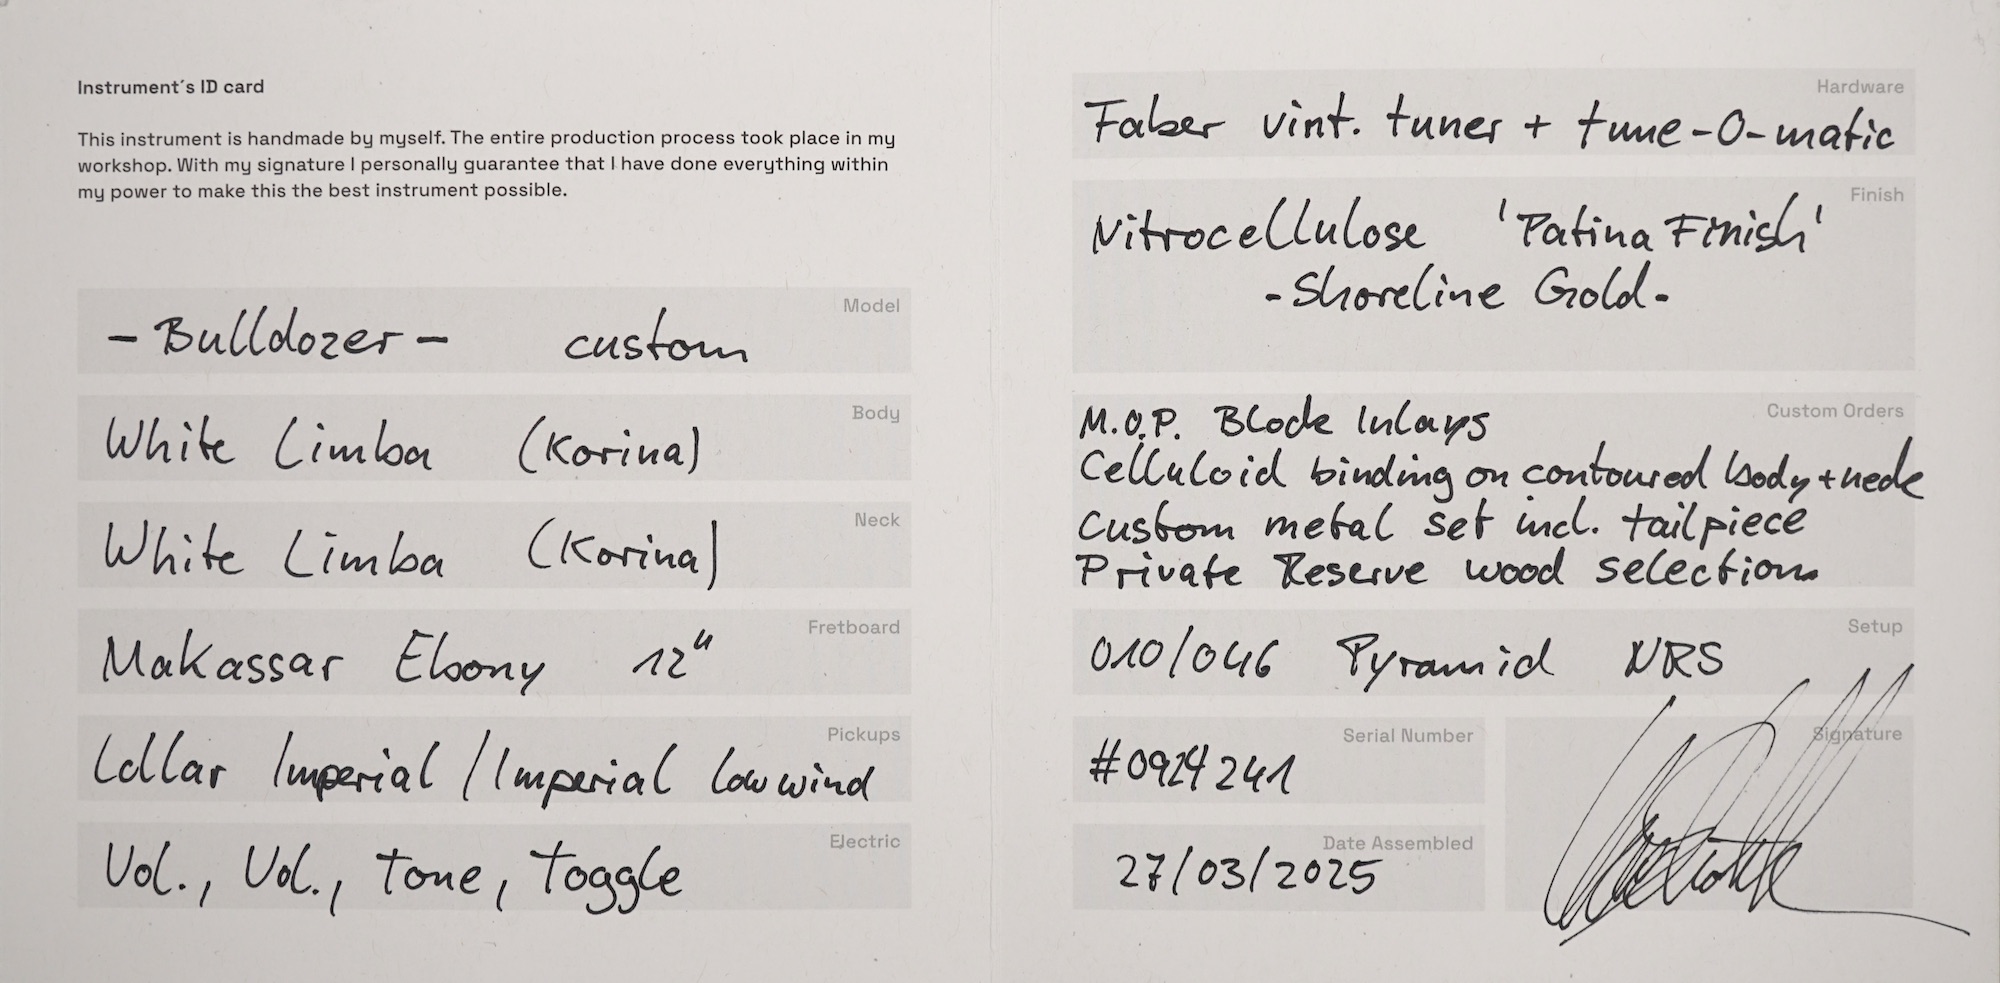 Instrument´s ID card
This instrument is handmade by myself. The entire production process took place in my
workshop. With my signature I personally guarantee that I have done everything within
my power to make this the best instrument possible.
Model
- Bulldozer - custom
Body
White Limba (Korina)
Neck
White Limba (Korina)
Fretboard
Makassar Ebony 12"
Pickups
Lollar Imperial / Imperial low wind
Electric
Vol., Vol., Tone, Toggle
Hardware
Faber vint. tuner + tune-O-matic
Finish
Nitrocellulose 'Patina Finish'
- Shoreline Gold -
Custom Orders
M.O.P. Block Inlays
Celluloid binding on contoured body + neck
Custom metal set incl. tailpiece
Private Reserve wood selection
Setup
010/046 Pyramid NRS
Serial Number
#0924241
Signature
Date Assembled
27/03/2025